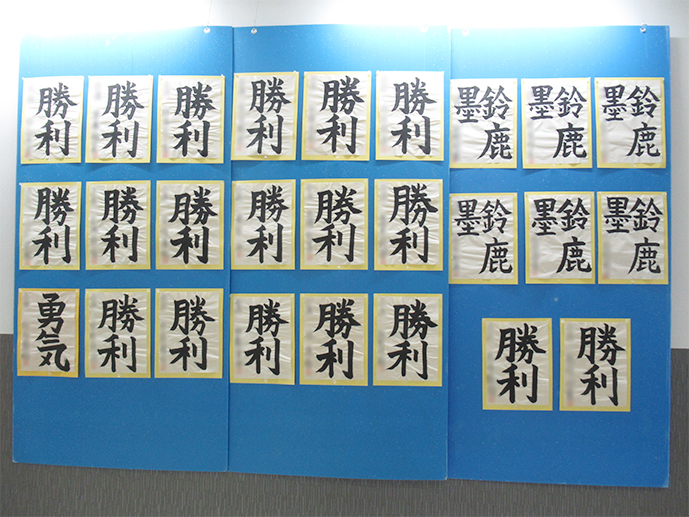 勝利
勝利
勝利
勝利
勝利
勝利
勇気
勝利
勝利
勝利
勝利
勝利
勝利
勝利
勝利
勝利
勝利
勝利
鈴鹿
墨
鈴鹿
墨
鈴鹿
墨
鈴鹿
墨
鈴鹿
墨
鈴鹿
墨
勝利
勝利